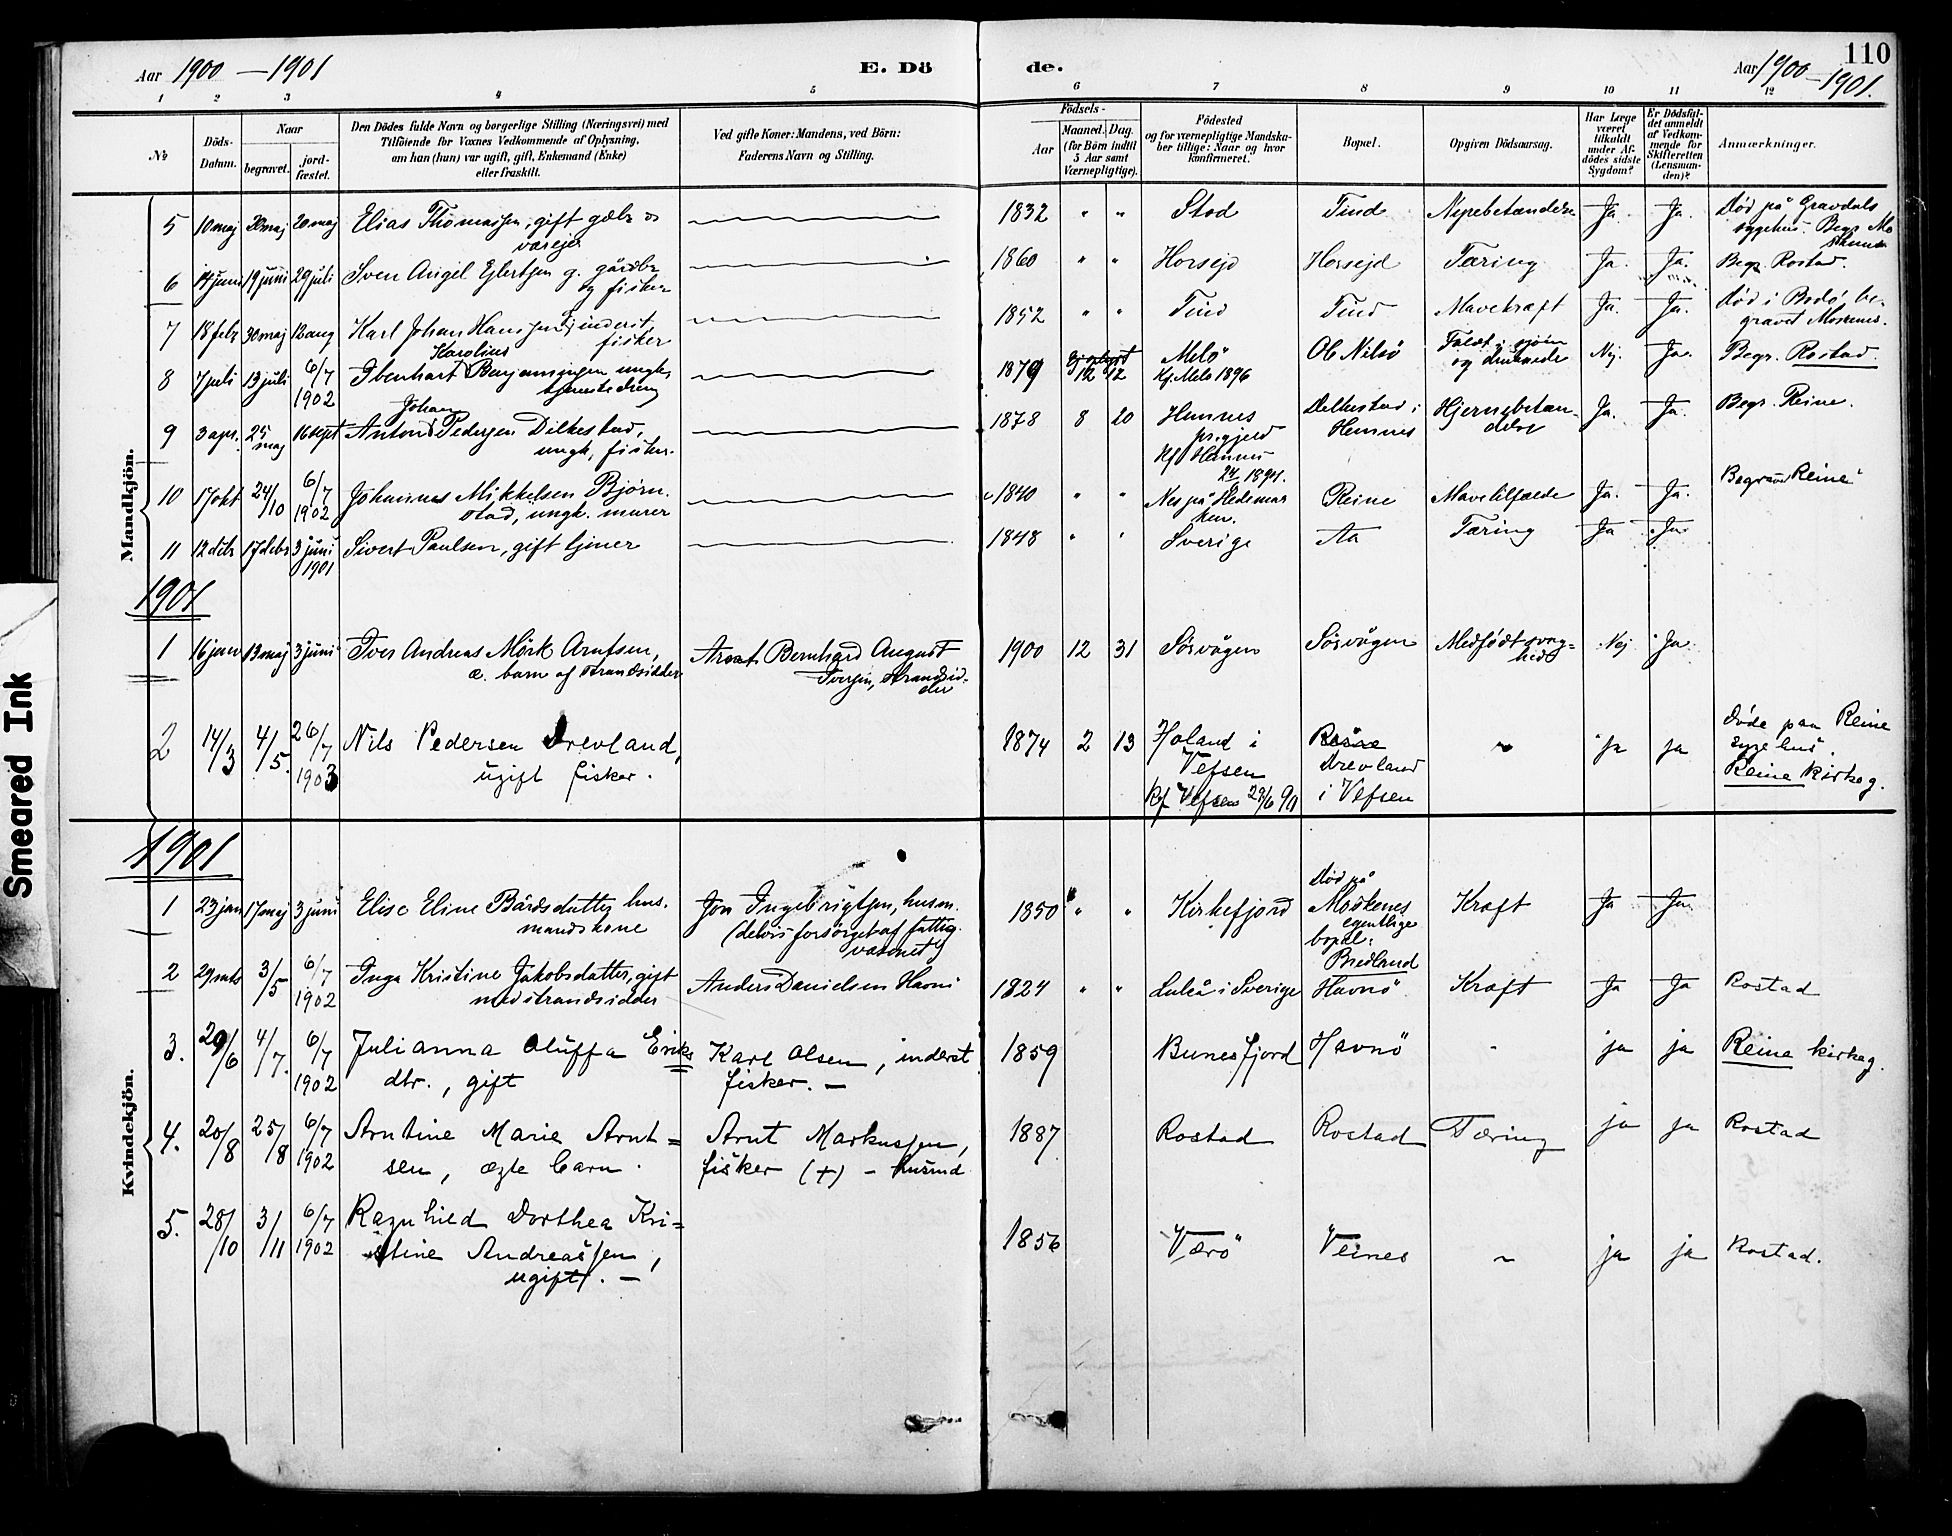 Aar 1900 — 1901
E. Dö de.
Aar 1900 – 1901.
110
1 2 3 4 5 6 7 8 9 10 11 12
No
Döds-Datum.
Naar
begravet.
jord-fæstet.
Den Dödes fulde Navn og borgerlige Stilling (Næringsvei) med
Tilföiende for Voxnes Vedkommende af Oplysning,
om han (hun) var ugift, gift, Enkemand (Enke)
eller fraskilt.
Ved gifte Koner: Mandens, ved Börn:
Faderens Navn og Stilling.
Födsels-
Aar
Maaned. Dag.
(for Börn indtil
5 Aar samt
Værnepligtige).
Födested
og for værnepligtige Mandska-
ber tillige: Naar og hvor
konfirmeret.
Bopæl.
Opgiven Dödsaarsag.
Har Læge
været
tilkaldt
under Af-
dödes sidste
Sygdom?
Er Dödsfal-
det anmeldt
af Vedkom-
mende for
Skifteretten
(Lensman-
den)?
Anmærkninger.
Mandkjön.
5 10 maj 20 maj 20 maj Elias Thomassen, gift
1832 " " Stod Tind Nyrebetændelse Ja. Ja. Död på Gravdals
sygehus. Begr.
6 14 juni 19 juni 29 juli Sven Angel Ejlertsen g. gårdbr.
og fisker
1860 " " Horsejd Horsejd Tæring Ja. Ja. Begr. Rostad.
7 18 febr 30 maj 12 aug Karl Johan Hanssen, inderst,
fisker
1852 " " Tind Tind Mavekræft Ja. Ja. Död i Bodö, be-
gravet Moskenes.
8 7 juli 13 juli 6/7 1902 Ibenhart Karolius Benjaminsen ungk.
tjenestedreng
1879 12 12 Melö
Kf. Melö 1896 Ol Nilsö Faldt i sjöen
og druknede Nej. Ja. Begr. Rostad.
9 3 apr. 25 maj 16 sept Anton Johan Pedersen Dilkestad,
ungk, fisker.
1878 8 20 Hemnes
prgjeld
Kf. Hemnes
1894. i
Hemnes Hjernebetæn-
delse Ja. Ja. Begr. Reine.
10 17 okt 24/10 6/7 1902 Johannes Mikkelsen Bjørn-
stad, ungk. murer
1840 " " Nes på Hedemar
ken. Reine Mavetilfælde Ja. Ja. Begr. Reine
11 12 debr 17 debr 3 juni 1901 Sivert Paulsen, gift tjener
1848 " " Sverige Aa Tæring Ja Ja
1901
1 16 jan 13 maj 3 juni Iver Andreas Mörk Arntsen,
æ. barn af strandsidder
Arnt Bernhard August
Iversen, Strandsid-
der
1900 12 31 Sörvågen Sörvågen Medfödt svag-
hed Nej Ja
2 14/3 4/5. 26/7 1903 Nils Pedersen Drevland,
ugift fisker.
1874 2 13 Holand i
Vefsen
Kf Vefsen 29/6 90 Drevland
i Vefsen ~ Ja ja Döde paa Reine
sygehus.
Reine kirkeg.
Kvindekjön.
1901
1 23 jan 17 maj 3 juni Elise Eline Bårdsdatter hus-
mandskone
Jon Ingebrigtsen, husm.
(delvis forsörget af fattig-
væsenet)
1850 " " Kirkefjord Död på
Moskenes
egentlige
bopæl:
Bredland Kræft Ja Ja
2 29 mts 3/5 6/7 1902 Inga Kristine Jakobsdatter, gift
med strandsidder
Anders Danielsen Havnö
1824 " " Luleå i Sverige Havnö Kræft Ja Ja Rostad
3. 29/6 4/7. 6/7 1902 Julianna Oluffa Eriks
dtr., gift
Karl Olsen, inderst
fisker. —
1859 Bunesfjord Havnö - ja ja Reine kirkeg.
4. 20/8 25/8 6/7 1902 Arntine Marie Arnt=
sen, ægte barn.
Arnt Markussen,
fisker (+) – husmd
1887 Rostad Rostad Tæring ja ja Rostad
5. 28/10 3/11 6/7 1902 Ragnhild Dorthea Kri=
stine Andreassen,
ugift. —
1856 Værö Veines ~ ja ja Rostad.
Smeared Ink